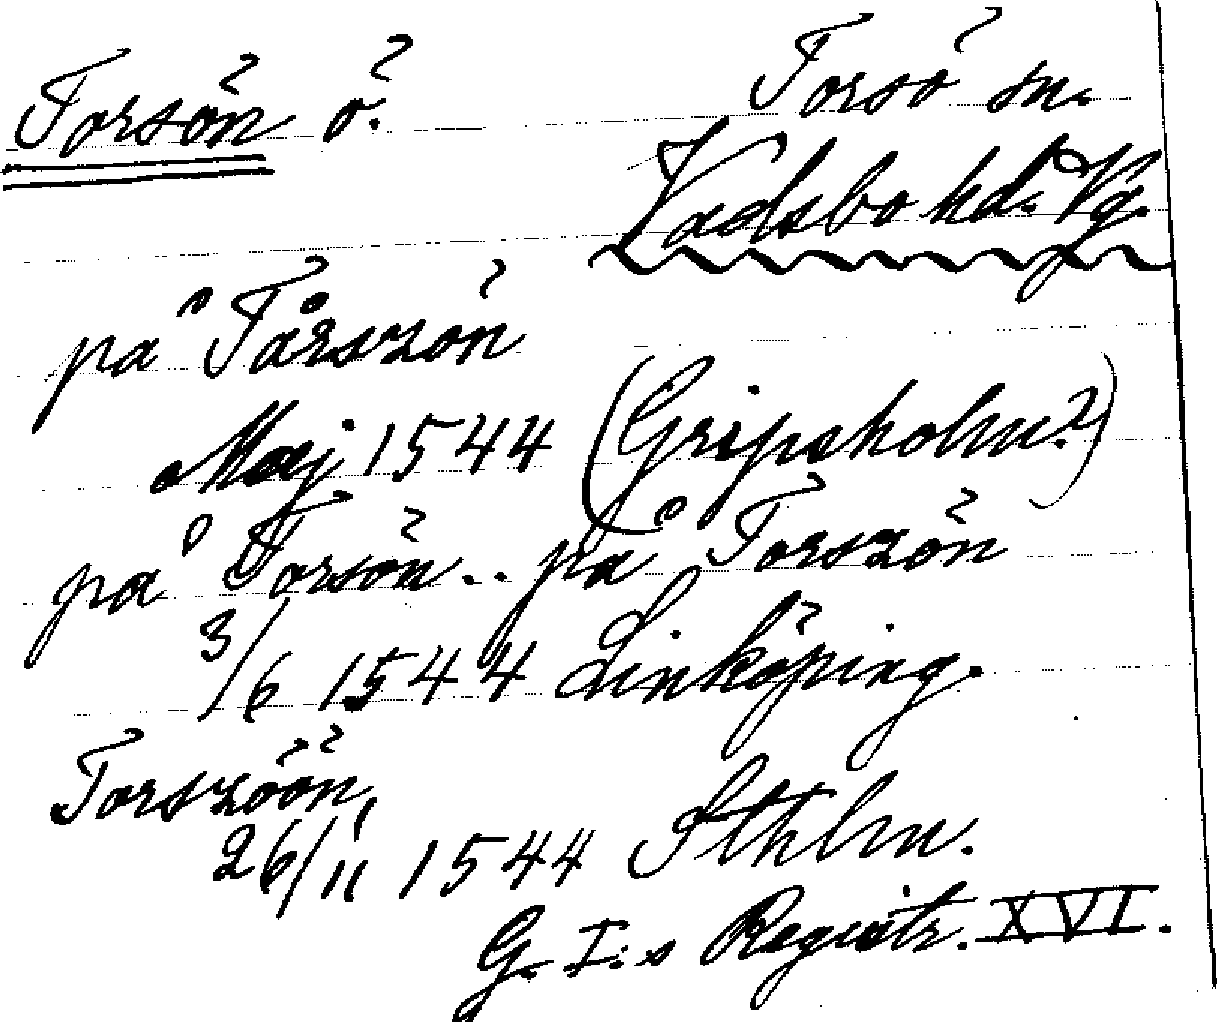 Torsön ö.
Torsö sn.
Vadsbo hd. Vg.
på Tårszön
Maj 1544 (Gripsholm?)
på Torsön .. på Torszön
3/6 1544 Linköping.
Torszöön,
26/11 1544 Sthlm.
G. I:s Registr. XVI.